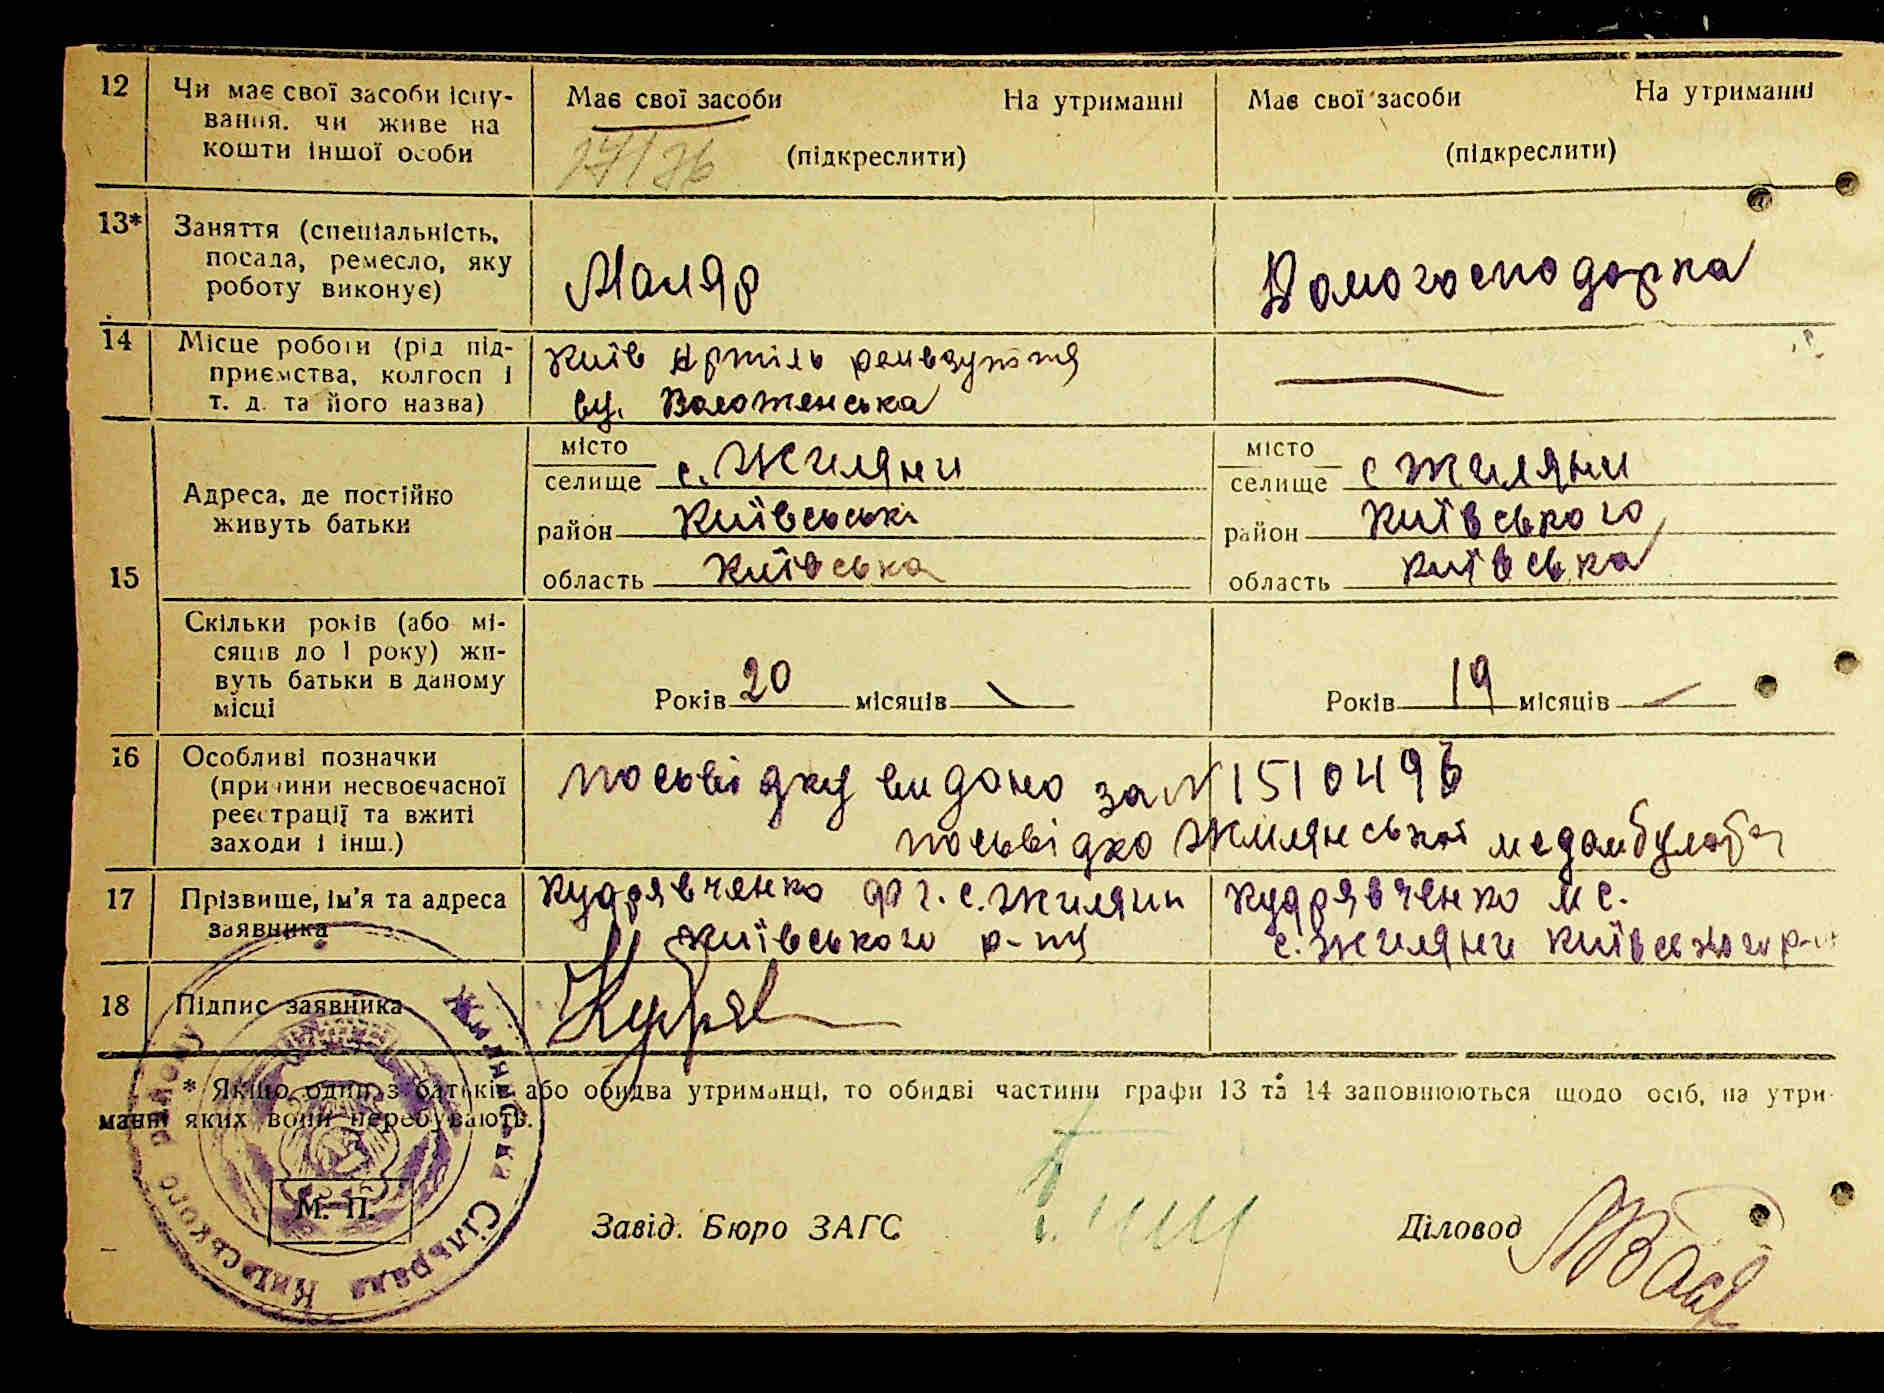 12 Чи має свої засоби існу-
вання. чи живе на
кошти іншої особи
Має свої засоби На утриманні
17/76
(підкреслити)
Має свої засоби На утриманні
(підкреслити)
13* Заняття (спеціальність,
посада, ремесло, яку
роботу виконує)
Маляр
Домогосподарка
14 Місце роботи (рід під-
приємства, колгосп і
т. д. та його назва)
Київ Артіль
ву. Воложенська
15 Адреса, де постійно
живуть батьки
місто
селище с. Жиляни
район Київські
область Київська
місто
селище с Жиляни
район Київського
область Київська
Скільки років (або мі-
сяців до 1 року) жи-
вуть батьки в даному
місці
Років 20 місяців
Років 19 місяців
16 Особливі позначки
(причини несвоєчасної
реєстрації та вжиті
заходи і інш.)
посьвідку видано за №
посьвідко Жилянської
17 Прізвище, ім'я та адреса
заявника
Кудрявченко Ф г. с. Жиляни
Київського р-ну
Кудрявченко М С.
с. Жиляни Київського р-
18 Підпис заявника
Кудряв
* Якщо один з батьків або обидва утриманці, то обидві частини графи 13 та 14 заповнюються щодо осіб, на утри-
манні яких вони перебувають.
Жилянська Сільрада Київського району
М. П.
Завід. Бюро ЗАГС
Діловод